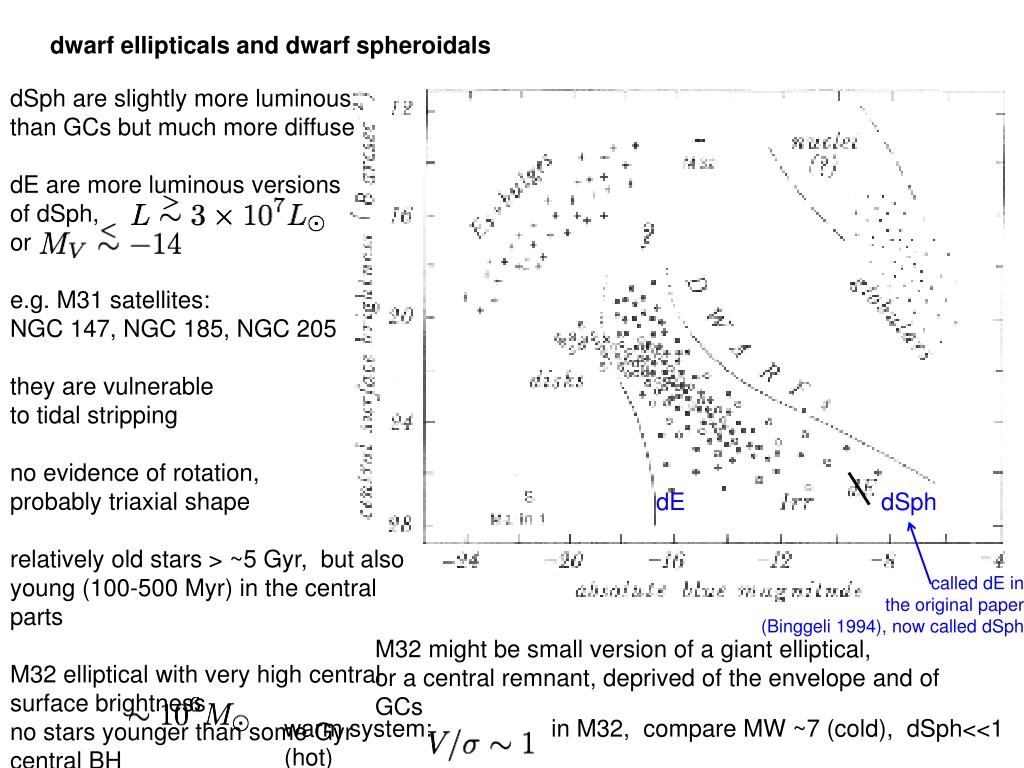 dwarf ellipticals and dwarf spheroidals
dSph are slightly more luminous
than GCs but much more diffuse
dE are more luminous versions
of dSph, L ≳ 3 × 10⁷L⊙
or M_V ≲ −14
e.g. M31 satellites:
NGC 147, NGC 185, NGC 205
they are vulnerable
to tidal stripping
no evidence of rotation,
probably triaxial shape
relatively old stars > ~5 Gyr, but also
young (100-500 Myr) in the central
parts
M32 elliptical with very high central
surface brightness
no stars younger than some Gyr
central BH
∼ 10⁶M⊙
central surface brightness (B arcsec⁻²)
12
16
20
24
28
M32
nuclei
(?)
?
globulars
DWARFS
disks
Malin 1
dE
Irr
dE
dSph
−24 −20 −16 −12 −8 −4
absolute blue magnitude
called dE in
the original paper
(Binggeli 1994), now called dSph
M32 might be small version of a giant elliptical,
or a central remnant, deprived of the envelope and of
GCs
warm system:
(hot)
V/σ ∼ 1 in M32, compare MW ~7 (cold), dSph<<1